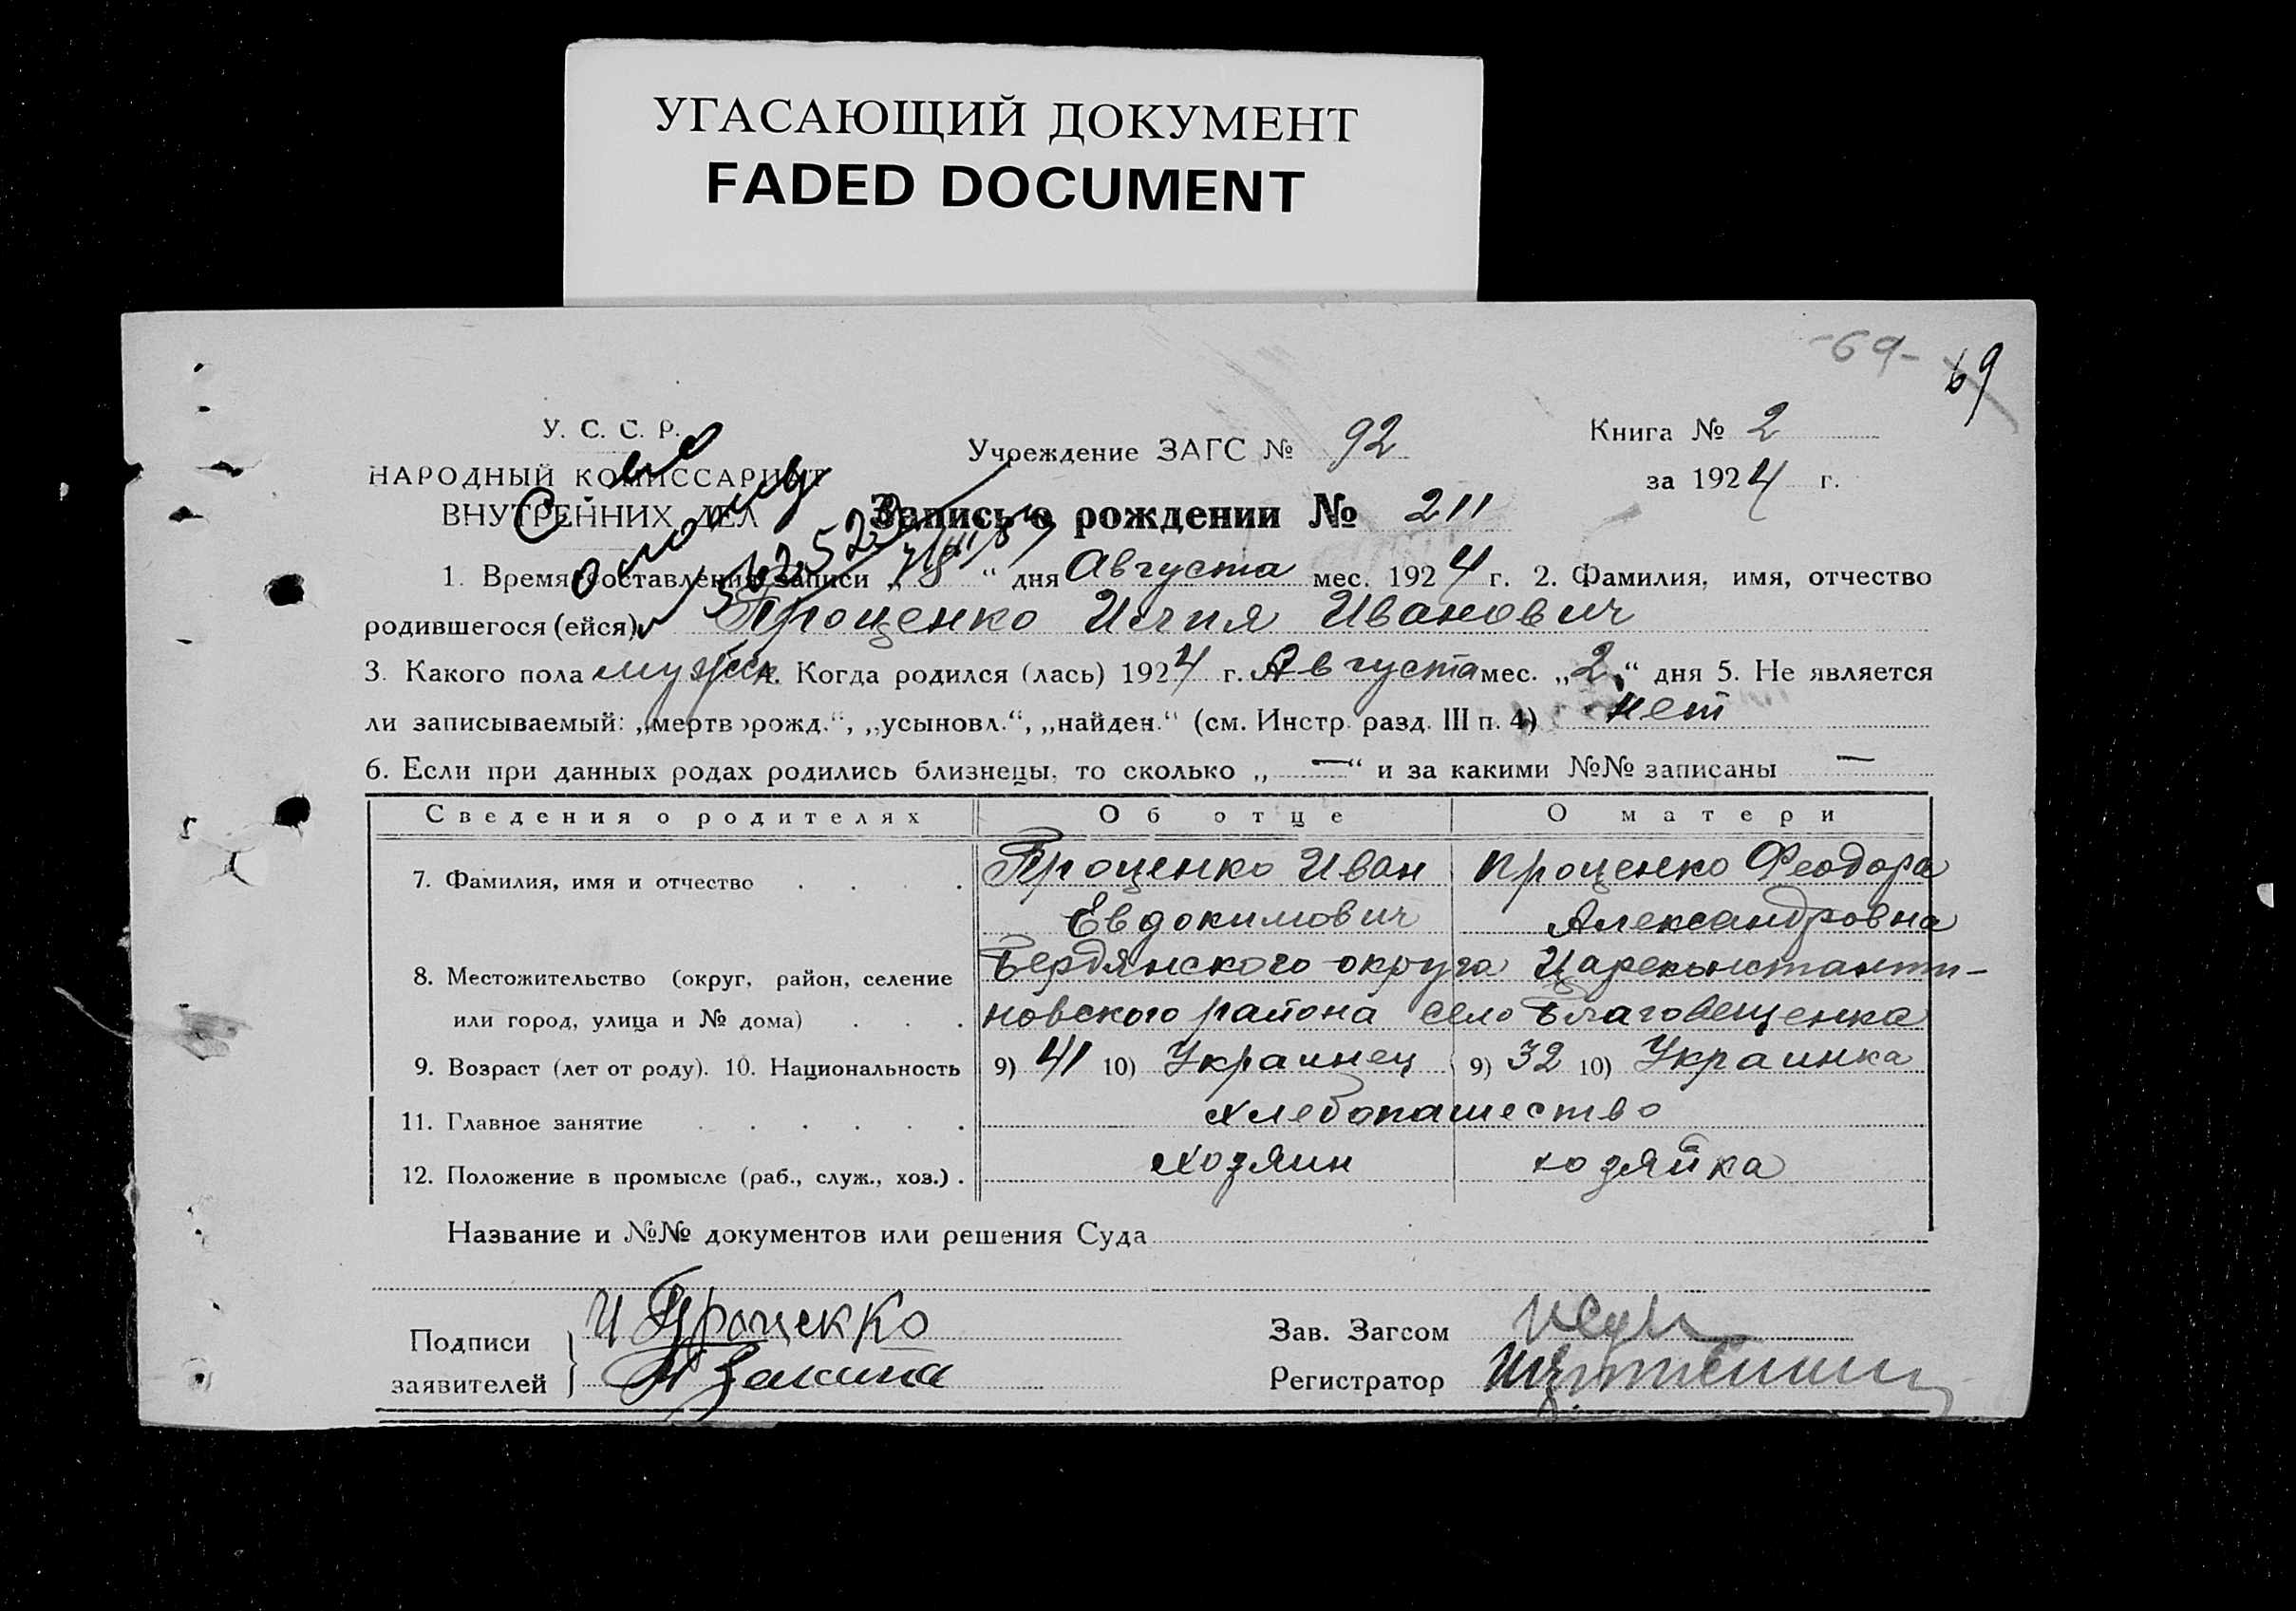 УГАСАЮЩИЙ ДОКУМЕНТ
FADED DOCUMENT
-69- 69
У. С. С. Р.
НАРОДНЫЙ КОМИССАРИАТ
ВНУТРЕННИХ ДЕЛ
Учреждение ЗАГС № 92
Книга № 2
за 1924 г.
Запись о рождении № 211
1. Время составления записи „ 8 “ дня Августа мес. 1924 г. 2. Фамилия, имя, отчество
родившегося (ейся) Проценко Илия Иванович
3. Какого пола мужск. 4. Когда родился (лась) 1924 г. Августа мес. „2“ дня 5. Не является
ли записываемый: „мертворожд.“, „усыновл.“, „найден.“ (см. Инстр. разд. III п. 4) нет
6. Если при данных родах родились близнецы, то сколько „ — “ и за какими №№ записаны —
Сведения о родителях Об отце О матери
7. Фамилия, имя и отчество . . . . Проценко Иван Проценко Феодора
Евдокимович Александровна
8. Местожительство (округ, район, селение Бердянского округа Царекынстанти-
или город, улица и № дома) . . . новского района село Благовещенка
9. Возраст (лет от роду). 10. Национальность 9) 41 10) Украинец 9) 32 10) Украинка
11. Главное занятие . . . . . . хлебопашество
12. Положение в промысле (раб., служ., хоз.) . хозяин хозяйка
Название и №№ документов или решения Суда
Подписи
заявителей
И Проценко
Зав. Загсом
Регистратор